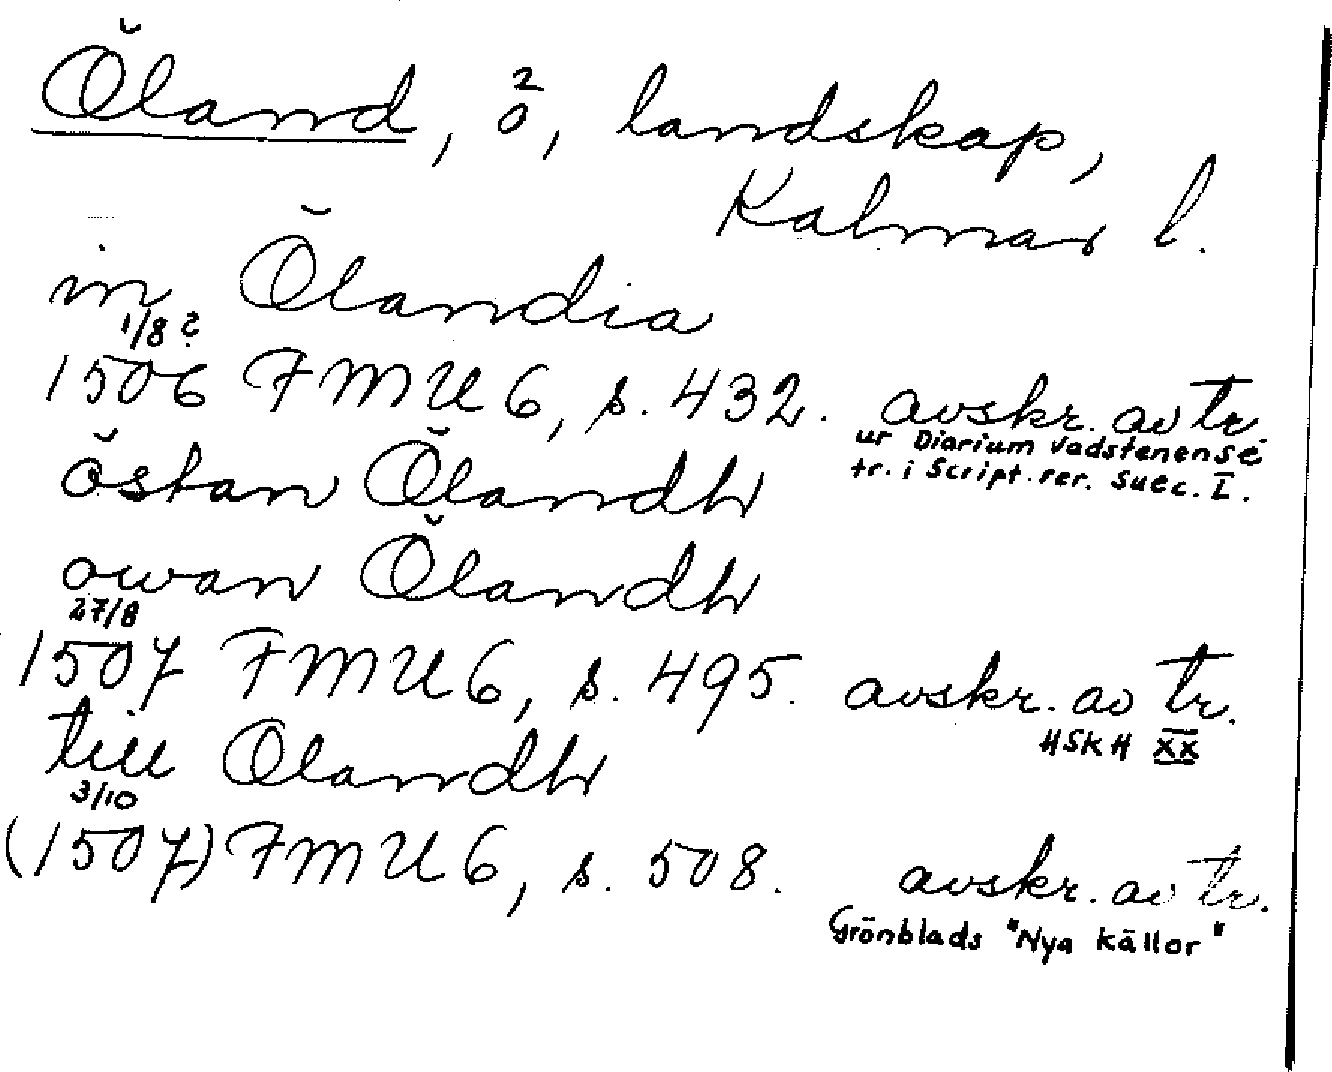 Öland, ö, landskap,
2
Kalmar l.
in Ölandia
1/8 ?
1506 FMU 6, s. 432. avskr. av tr.
ur Diarium Vadstenense
tr. i Script. rer. Suec. I.
östan Ölandh
owan Ölandh
27/8
1507 FMU 6, s. 495. avskr. av tr.
HSKH XX
till Olandh
3/10
(1507) FMU 6, s. 508. avskr. av tr.
Grönblads "Nya källor"